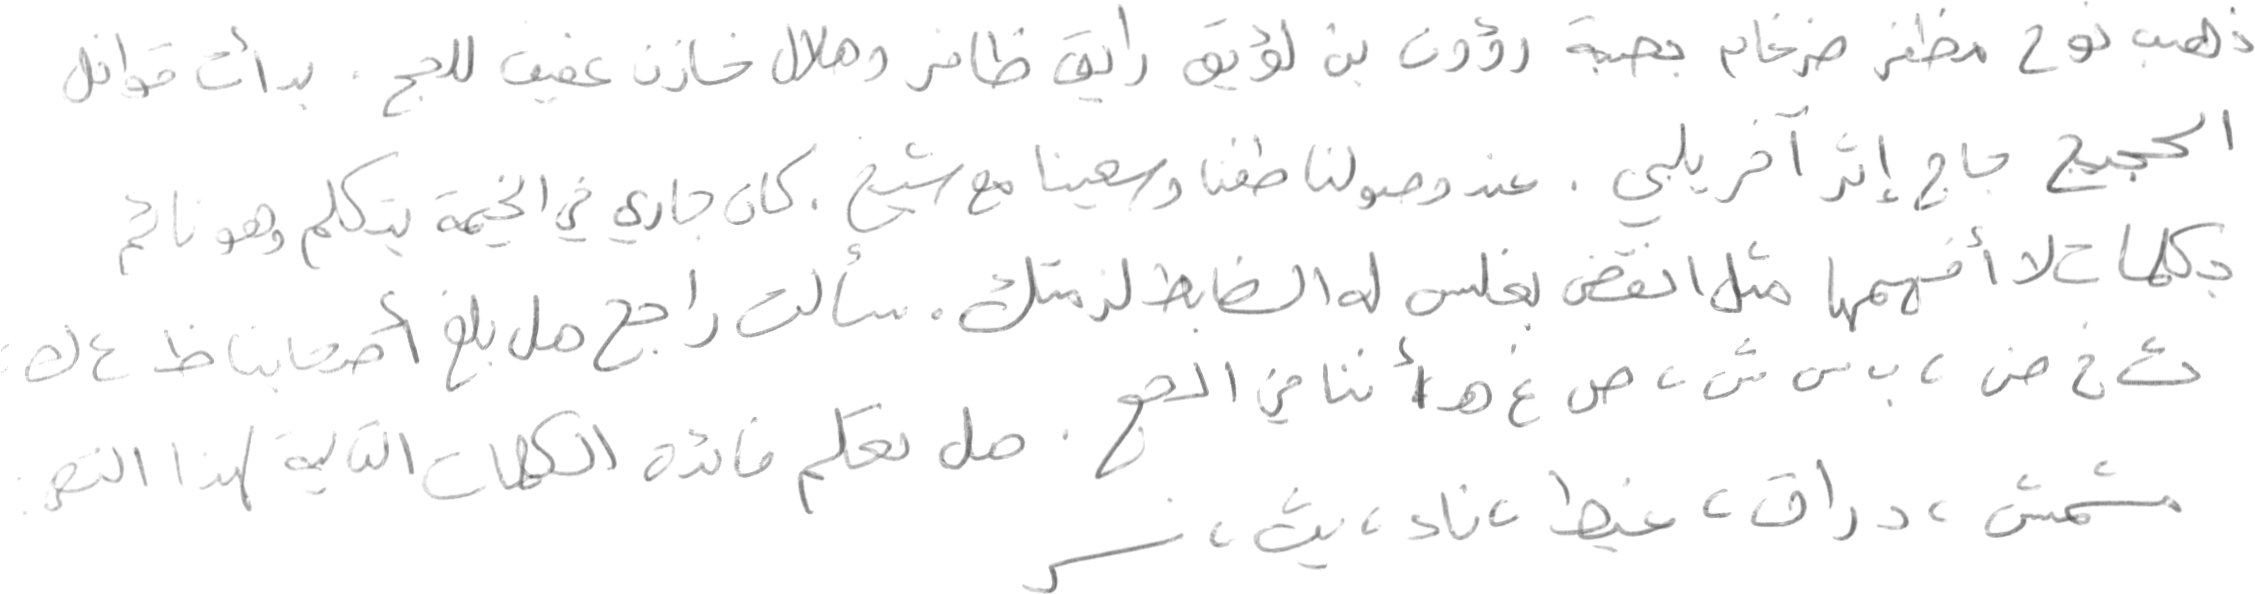 ذهب نوح مظفر ضرغام بصحبة رؤوف بن لؤيق رايق ظافر وهلال خازن عفيف للحج . بدأت قوافل
الحجيج حاج إثر آخر يلبي . عند وصولنا طفنا وسعينا مع شيخ . كان جاري في الخيمة يتكلم وهو نائم
بكلمات لا أفهمها مثل انقض بغلس له الضابط لزمتك . سألت راجح هل بلغ أصحابنا ظ ع ك ،
ث خ ض ، ب س ش ، ص غ هـ أننا في الحج . هل تعلم فائدة الكلمات التالية لهذا النص :
مشمش ، دراق ، غيظ ، ناد ، يث ،